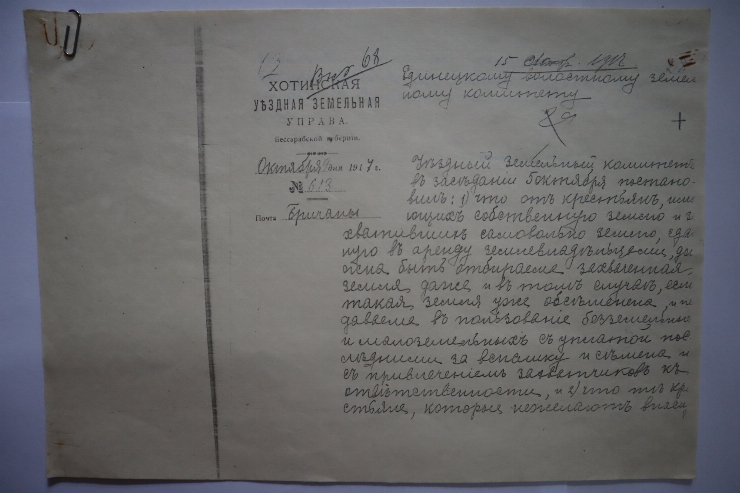 68
15 Октяб. 1917
ХОТИНСКАЯ
УѢЗДНАЯ ЗЕМЕЛЬНАЯ
УПРАВА.
Бессарабской губерніи.
Октября дня 1917 г.
№ 613
Почта Бричаны
Единецкому волостному земель
ному комитету
Уѣздный земельный комитетъ
въ засѣданіи 5 октября постано-
вилъ: 1) что отъ крестьянъ, имѣ
ющихъ собственную землю и за
хватившихъ самовольно землю, сда
ную въ аренду землевладѣльцами, до
лжна быть отбираема захваченная
земля даже и въ томъ случаѣ, если
такая земля уже обсѣменена, и по
даваема въ пользованіе безземельн
и малоземельныхъ съ уплатой по
слѣдними за вспашку и сѣмена и
съ привлеченіемъ захватчиковъ къ
отвѣтственности, и 2) что тѣ кре
стьяне, которые нежелаютъ